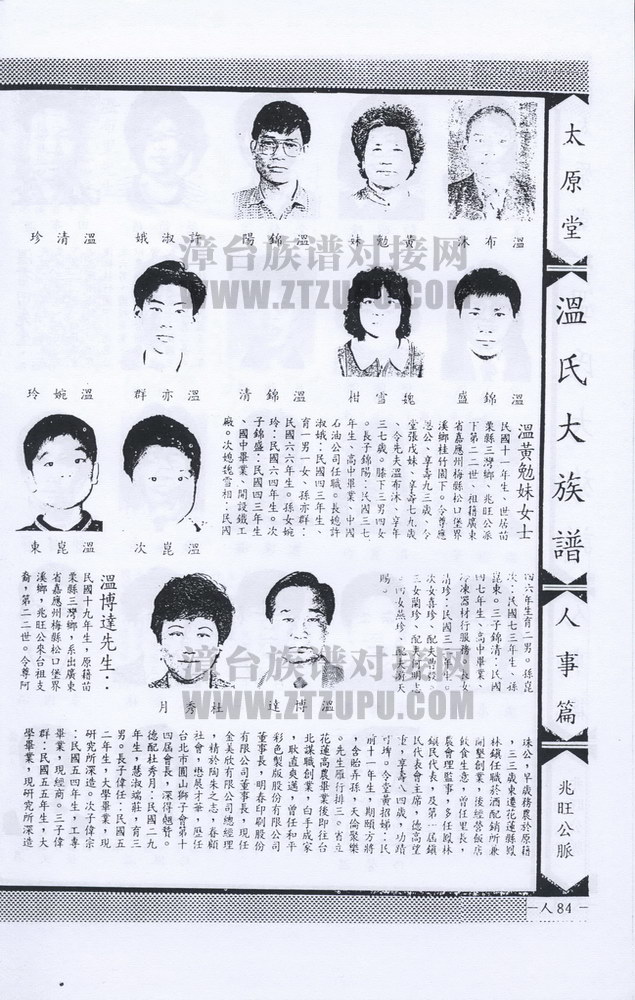 太原堂
溫氏大族譜
人事篇
兆旺公脈
人84
溫布沐
黃勉妹
溫錦陽
許淑娥
溫清珍
溫錦盛
魏雪柑
溫錦清
溫亦群
溫婉玲
溫黃勉妹女士
民國十一年生，世居苗
栗縣三灣鄉，兆旺公派
下第二二世，祖籍廣東
省嘉應州梅縣松口堡界
溪鄉桂竹園下。令尊應
恩公、享壽九三歲、令
堂張戊妹、享壽七九歲
、令先夫溫布沐、享年
三七歲。膝下三男四女
。長子錦陽：民國三七
年生、高中畢業、中國
石油公司任職。長媳許
淑娥：民國四三年生、
育一男一女、孫亦群：
民國六六年生。孫女婉
玲：民國六四年生。次
子錦盛：民國四三年生
、國中畢業、開設鐵工
廠。次媳魏雪相：民國
溫崑次
溫崑東
四六年生育二男。孫崑
次：民國七三年生、孫
崑東。三子錦清：民國
四七年生、高中畢業、
冷凍器材行服務。長女
清珍：民國三二年生。
溫博達
杜秀月
溫博達先生：
民國十九年生，原籍苗
栗縣三灣鄉，系出廣東
省嘉應州梅縣松口堡界
溪鄉，兆旺公來台祖支
裔，第二二世。令尊阿
珠公，早歲務農於原籍
，三三歲東遷花蓮縣鳳
林鎮任職菸酒配銷所兼
開墾創業，後經營飯店
飲食生意，曾任里長，
農會理監事，多任鳳林
鎮民代表，及第一屆鎮
民代表會主席，德高望
重，享壽八四歲，功績
可埤。令堂黃招娣：民
前十一年生，期頤方將
，含飴弄孫，天倫聚樂
。先生雁行排三。省立
花蓮高農畢業後即往台
北謀職創業，白手成家
，耿直爽邁，曾任和平
彩色製版股份有限公司
董事長，明春印刷股份
有限公司董事長，現任
金美欣有限公司總經理
，精於陶朱之志，眷顧
社會，懋展才華，歷任
台北市圓山獅子會第十
四屆會長，深得翹贊。
德配杜秀月：民國二九
年生，慧淑端莊，育三
男。長子偉任：民國五
二年生，大學畢業，現
研究所深造。次子偉宗
：民國五四年生，工專
畢業，現經商。三子偉
群：民國五五年生，大
學畢業，現研究所深造
漳台族谱对接网
WWW.ZTZUPU.COM
漳台族谱对接网
WWW.ZTZUPU.COM